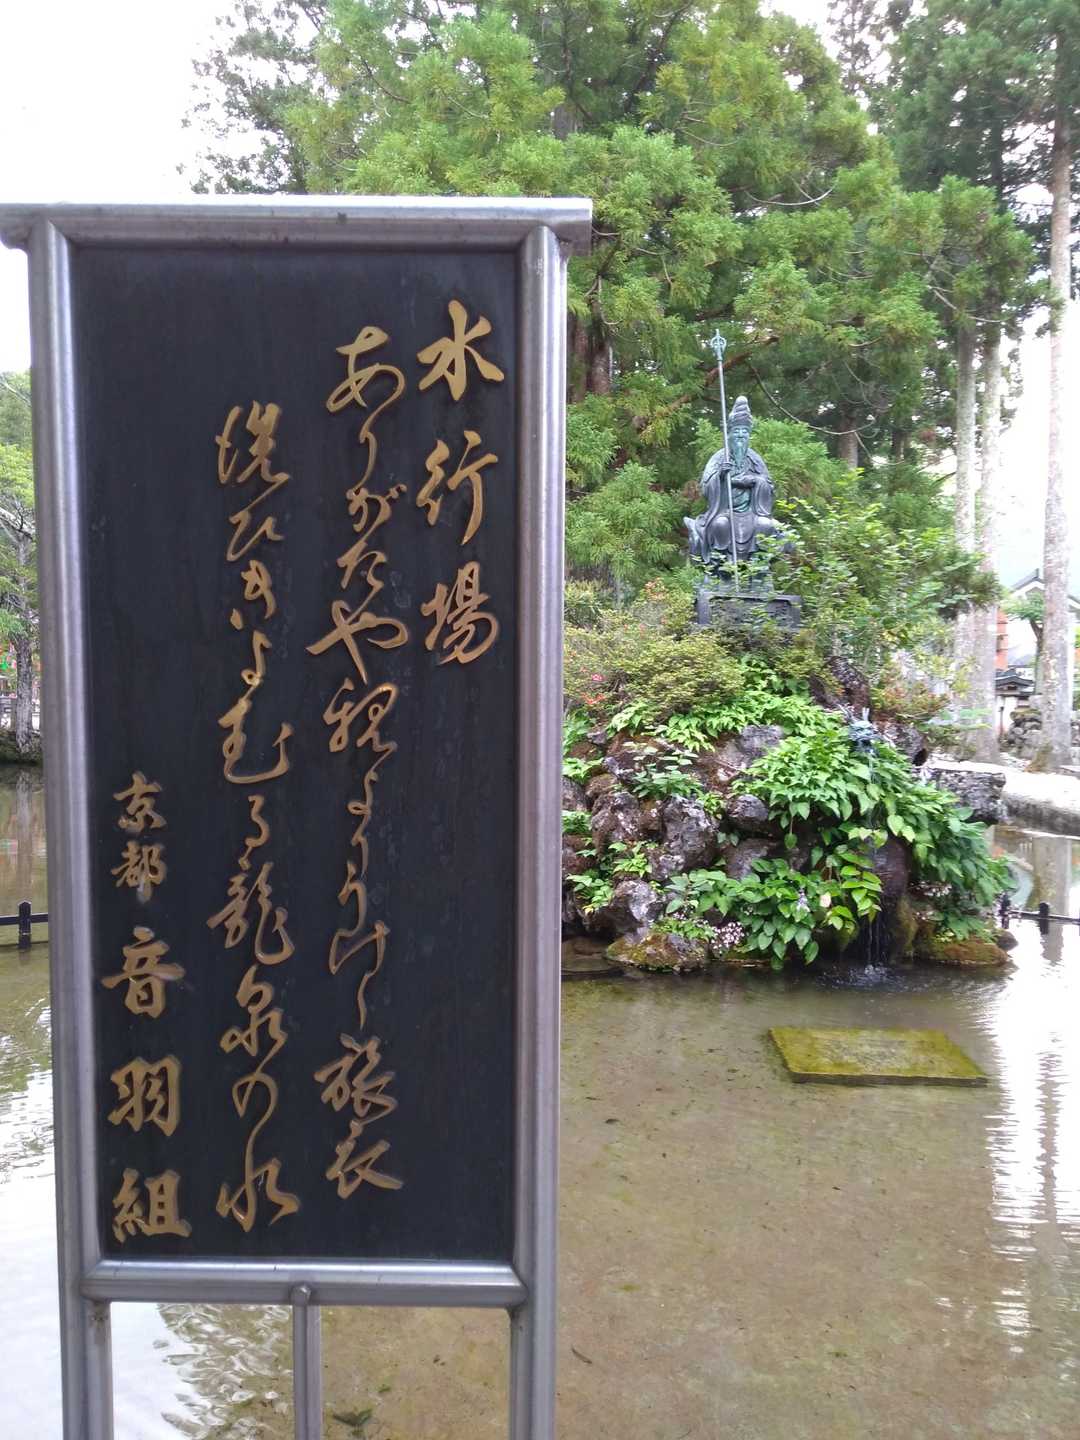 水行場
ありがたや親よりうけし旅衣
洗ひきよむる龍泉の水
京都 音羽組